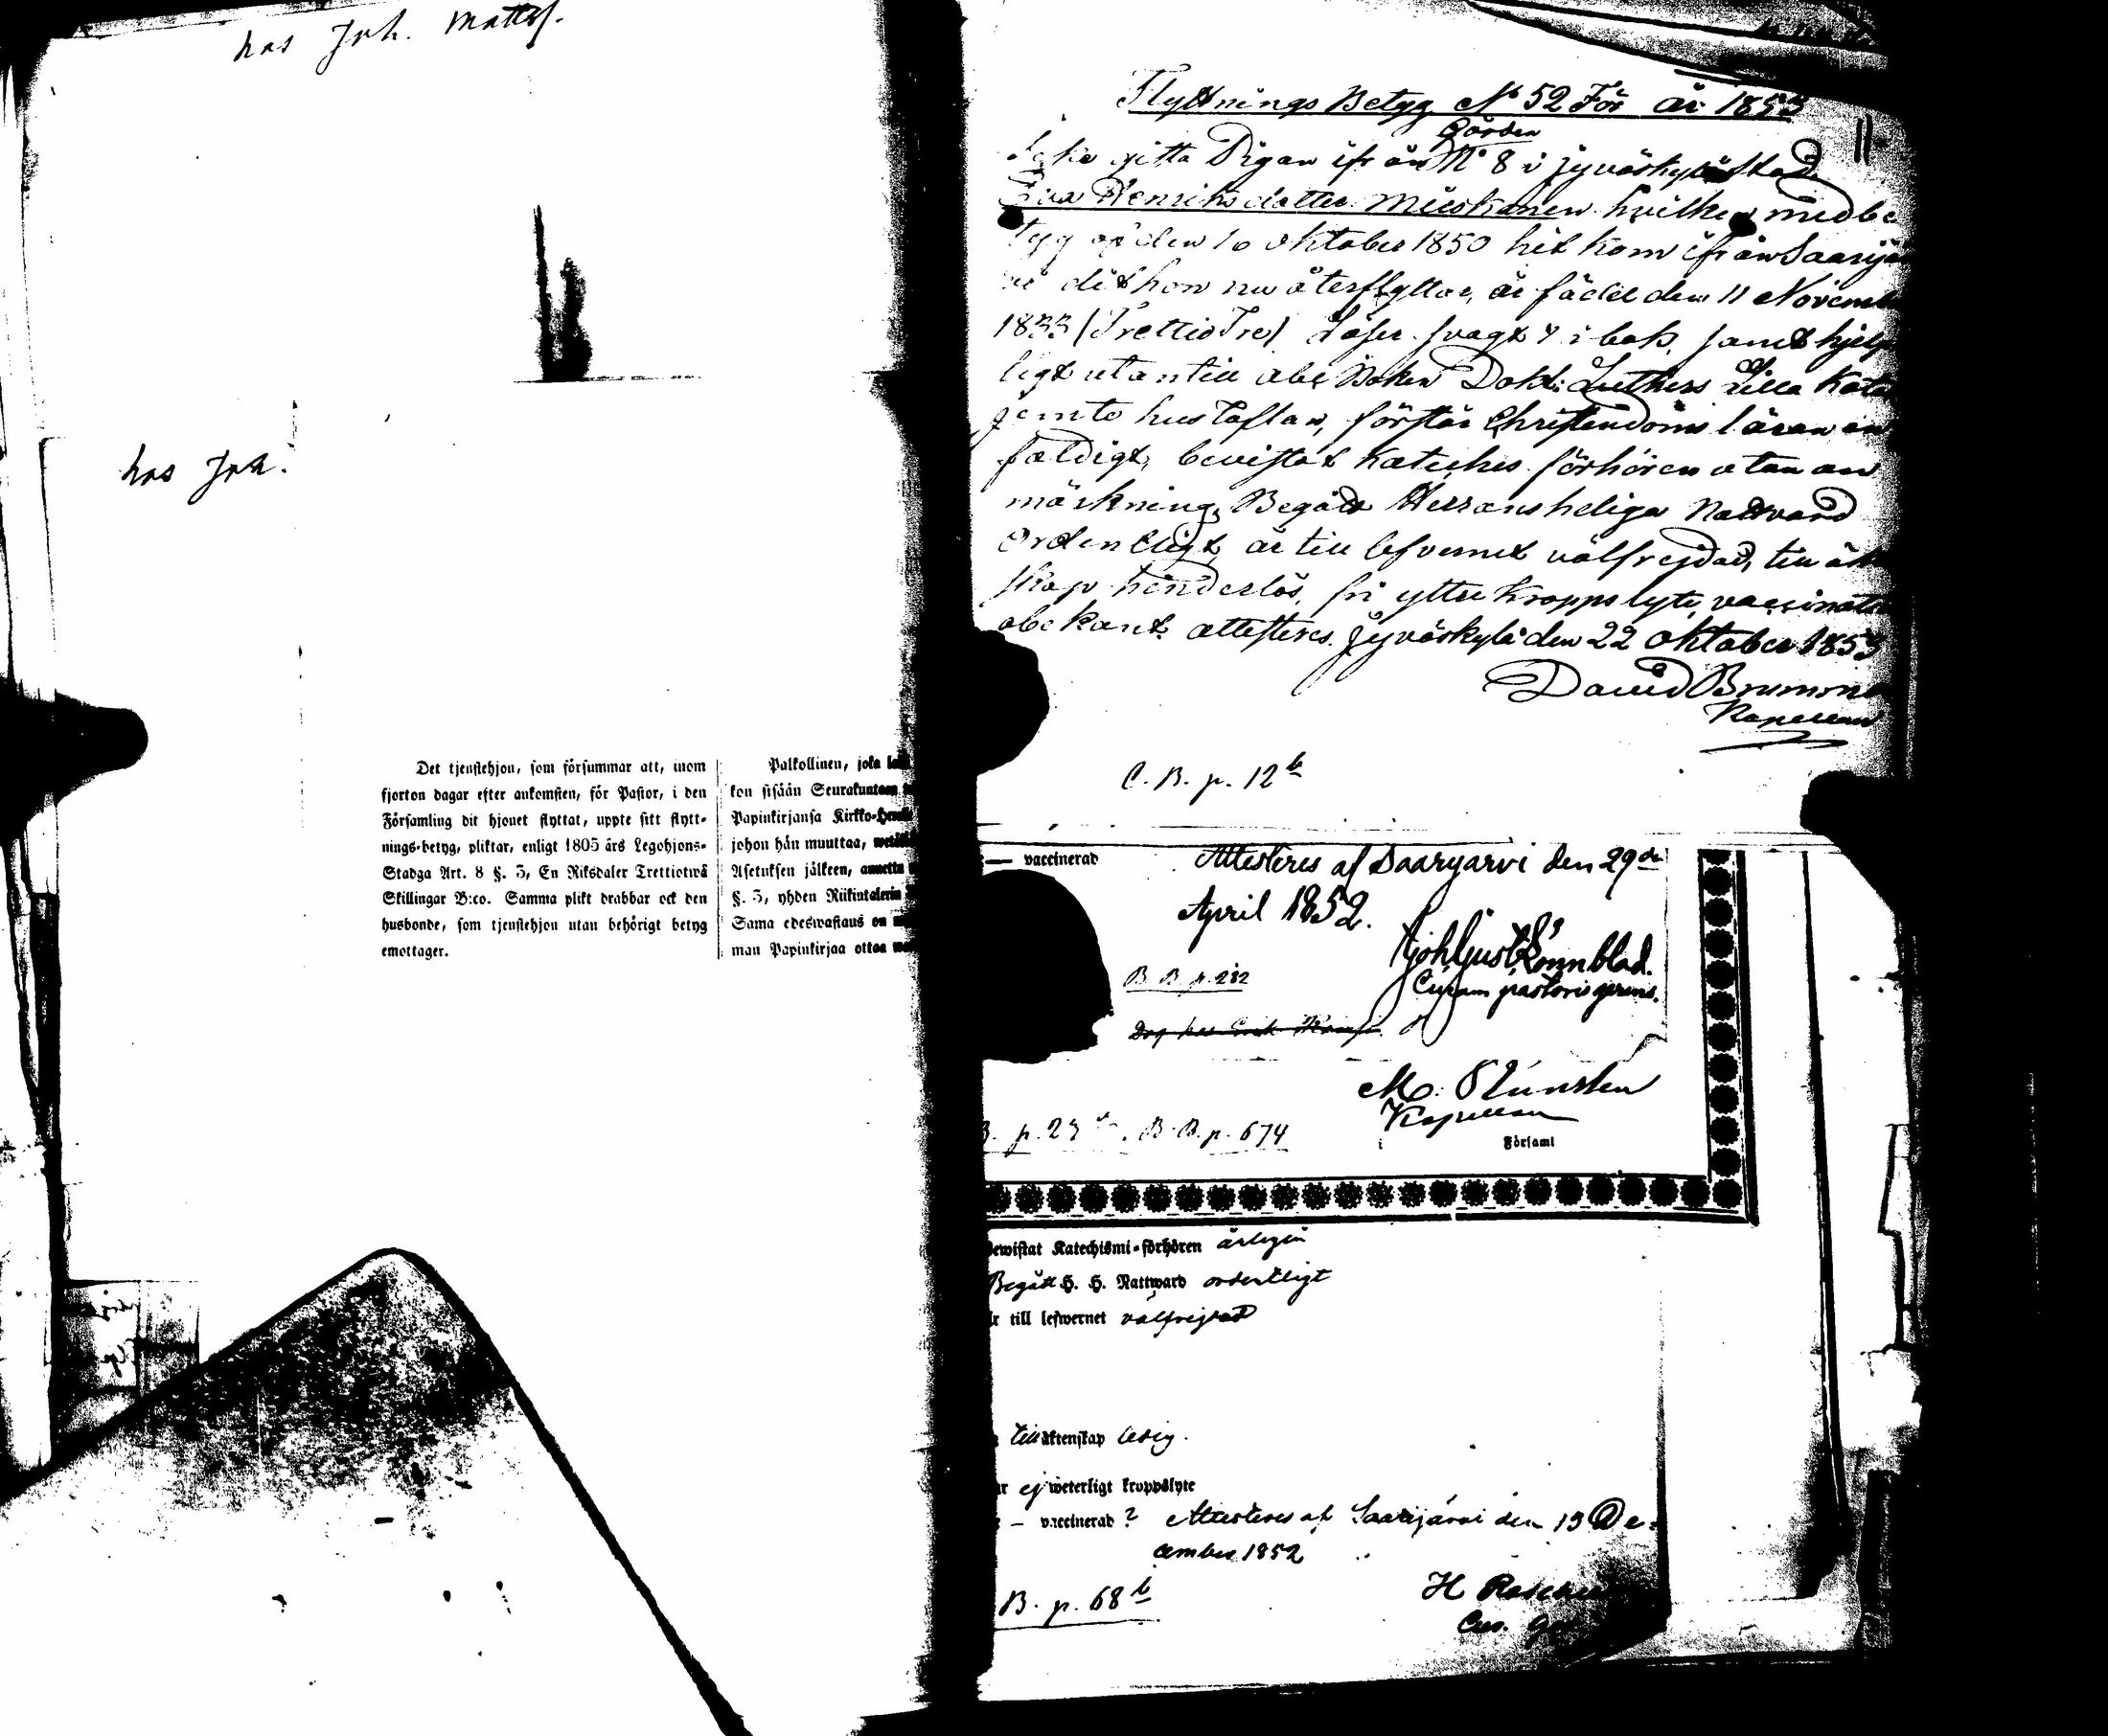 hos Joh. Matts.
hos Joh.
Det tjenstehjon, som försummar att, inom
fjorton dagar efter ankomsten, för Pastor, i den
Församling dit hjonet flyttat, uppte sitt flytt-
nings-betyg, pliktar, enligt 1805 års Legohjons-
Stadga Art. 8 §. 3, En Riksdaler Trettiotwå
Skillingar B:co. Samma plikt drabbar ock den
husbonde, som tjenstehjon utan behörigt betyg
emottager.
Palkollinen, joka
kon sisään Seurakuntaan
Papinkirjansa Kirkko-
johon hän muuttaa,
Asetuksen jälkeen, annettu
§. 3, yhden Riikintalerin
Sama edeswastaus on
man Papinkirjaa ottaa
Flyttnings Betyg No 52 För år 1853
Gården
Pigan ifrån No 8 i Jyväskylä Stad
Henriksdotter hvilken med be
tyg af den 10 oktober 1850 hit kom ifrån Saarijär
dit hon nu återflyttar, är född den 11 Novemb
1833 (TrettioTre) Läser svagt i bok, samt hjelp
ligt utantill abc Boken Dokt: Luthers Lilla Kate
jemte hustaflan, förstår Christendoms läran en
faldigt, bevistat Katches förhören utan an
märkning, Begått Herrans heliga Nattvard
Ordentligt, är till lefvernet välfrejdad, till äk
skap hinderlös, fri yttre kroppslyte, vaccinat
obekant attesteres. Jyväskylä den 22 oktober 1853
David
Kapellan
C. B. p. 12 b
— vaccinerad Attesteres af Saarijarvi den 29de
April 1852.
B B p. 282
Curam pastoris gerens.
M.
Kapellan
B. B. p. 674
Församl
bewistat Katechismi-förhören årligen
Begått H. H. Nattward ordentligt
är till lefwernet välfrejdad
till äktenskap ledig.
ej weterligt kroppslyte
— vaccinerad ? Attesteres af Saarijärvi den 13 De-
cember 1852
B. p. 68 b
H
Cur.